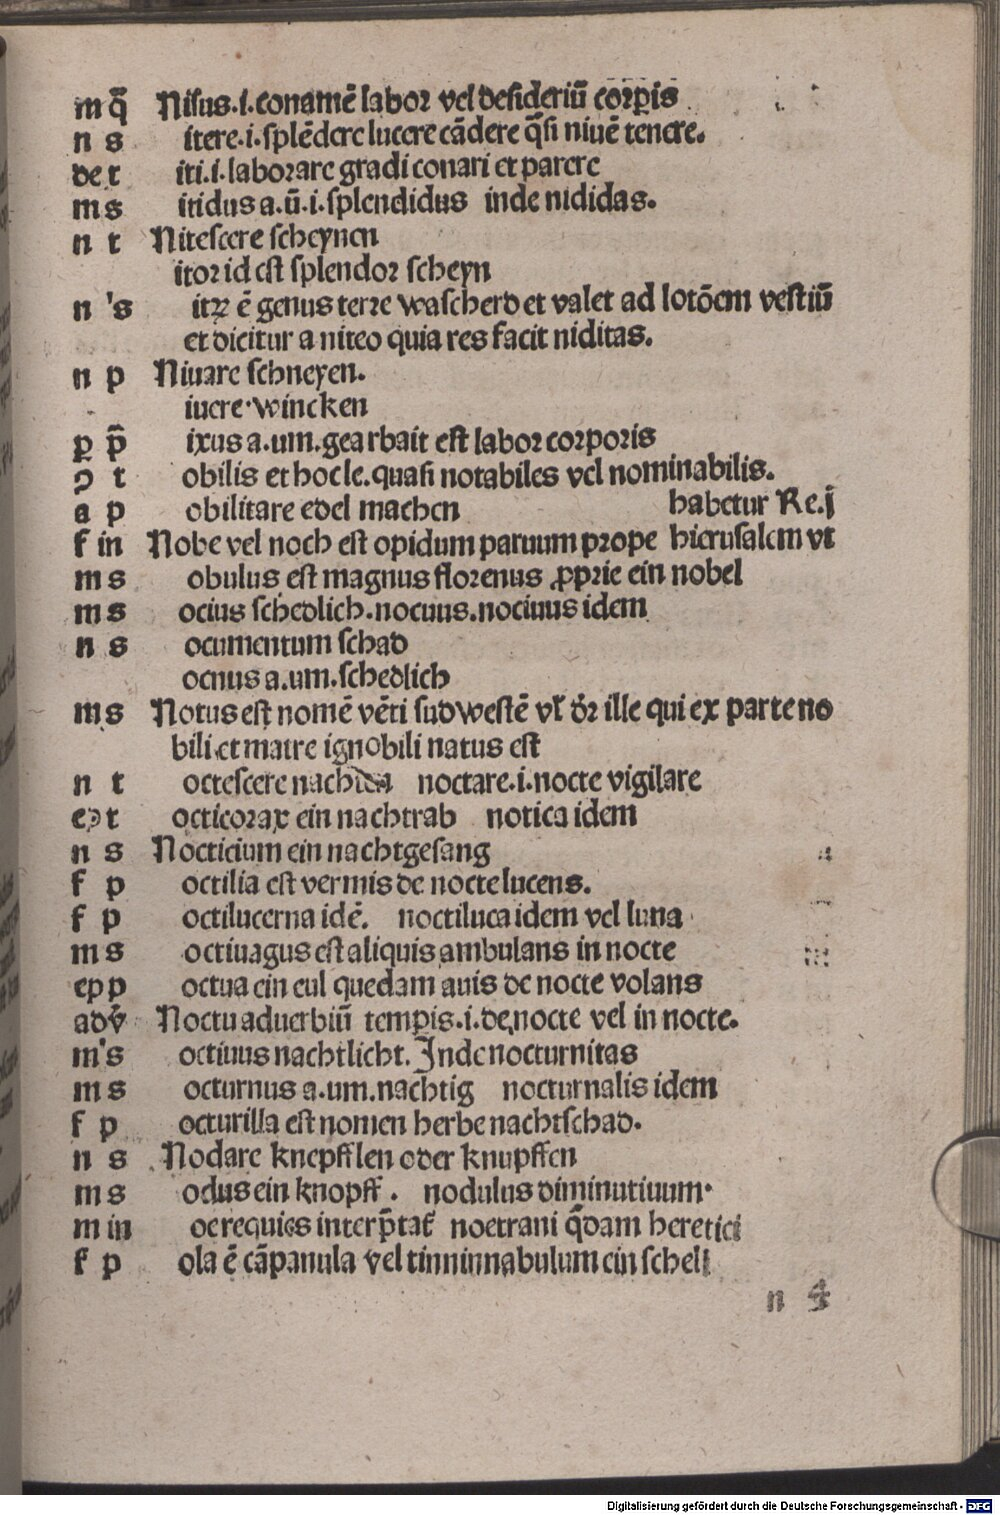 m q̄ Nisus.i.conamē labor vel desideriū corꝑis
n s itere.i.splēdere lucere cādere q̄si niuē tenere.
de t iti.i.laborare gradi conari et parere
m s itidus a.ū.i.splendidus inde nididas.
n t Nitescere scheynen
itor id est splendor scheyn
n 's itrꝫ ē genus terre wascherd et valet ad lotōem vestiū
et dicitur a niteo quia res facit niditas.
n p Niuare schneyen.
iuere.wincken
ꝑ p̄ ixus a.um.gearbait est labor corporis
ꝯ t obilis et hoc le.quasi notabiles vel nominabilis.
a p obilitare edel machen habetur Re.j
f in Nobe vel noch est opidum paruum prope hierusalem vt
m s obulus est magnus florenus ꝓprie ein nobel
m s ocius schedlich.nocuus.nociuus idem
n s ocumentum schad
ocnus a.um.schedlich
m s Notus est nomē vēti sudwestē vl̄ dr̄ ille qui ex parte no
bili et matre ignobili natus est
n t octescere nachten noctare.i.nocte vigilare
eꝯ t octicorax ein nachtrab notica idem
n s Nocticium ein nachtgesang
f p octilia est vermis de nocte lucens.
f p octilucerna idē. noctiluca idem vel luna
m s octiuagus est aliquis ambulans in nocte
ep p octua ein eul quedam auis de nocte volans
adv̄ Noctu aduerbiū temꝑis.i.de nocte vel in nocte.
m 's octiuus nachtlicht. Inde nocturnitas
m s octurnus a.um.nachtig nocturnalis idem
f p octurilla est nomen herbe nachtschad.
n s Nodare knepfflen oder knupffen
m s odus ein knopff. nodulus diminutiuum.
m in oe requies interp̄tat̄ noetrani q̄dam heretici
f p ola ē cāpanula vel tinninnabulum ein schell
n 4
Digitalisierung gefördert durch die Deutsche Forschungsgemeinschaft - DFG